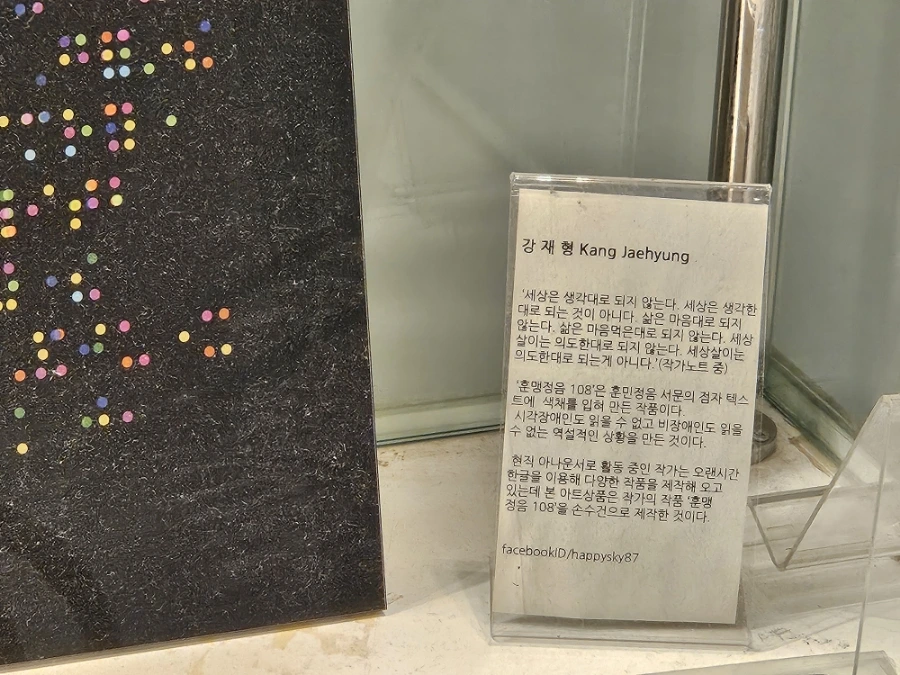 강 재 형 Kang Jaehyung
'세상은 생각대로 되지 않는다. 세상은 생각한
대로 되는 것이 아니다. 삶은 마음대로 되지
않는다. 삶은 마음먹은대로 되지 않는다. 세상
살이는 의도한대로 되지 않는다. 세상살이는
의도한대로 되는게 아니다.'(작가노트 중)
'훈맹정음 108'은 훈민정음 서문의 점자 텍스
트에 색채를 입혀 만든 작품이다.
시각장애인도 읽을 수 없고 비장애인도 읽을
수 없는 역설적인 상황을 만든 것이다.
현직 아나운서로 활동 중인 작가는 오랜시간
한글을 이용해 다양한 작품을 제작해 오고
있는데 본 아트상품은 작가의 작품 '훈맹
정음 108'을 손수건으로 제작한 것이다.
facebookID/happysky87